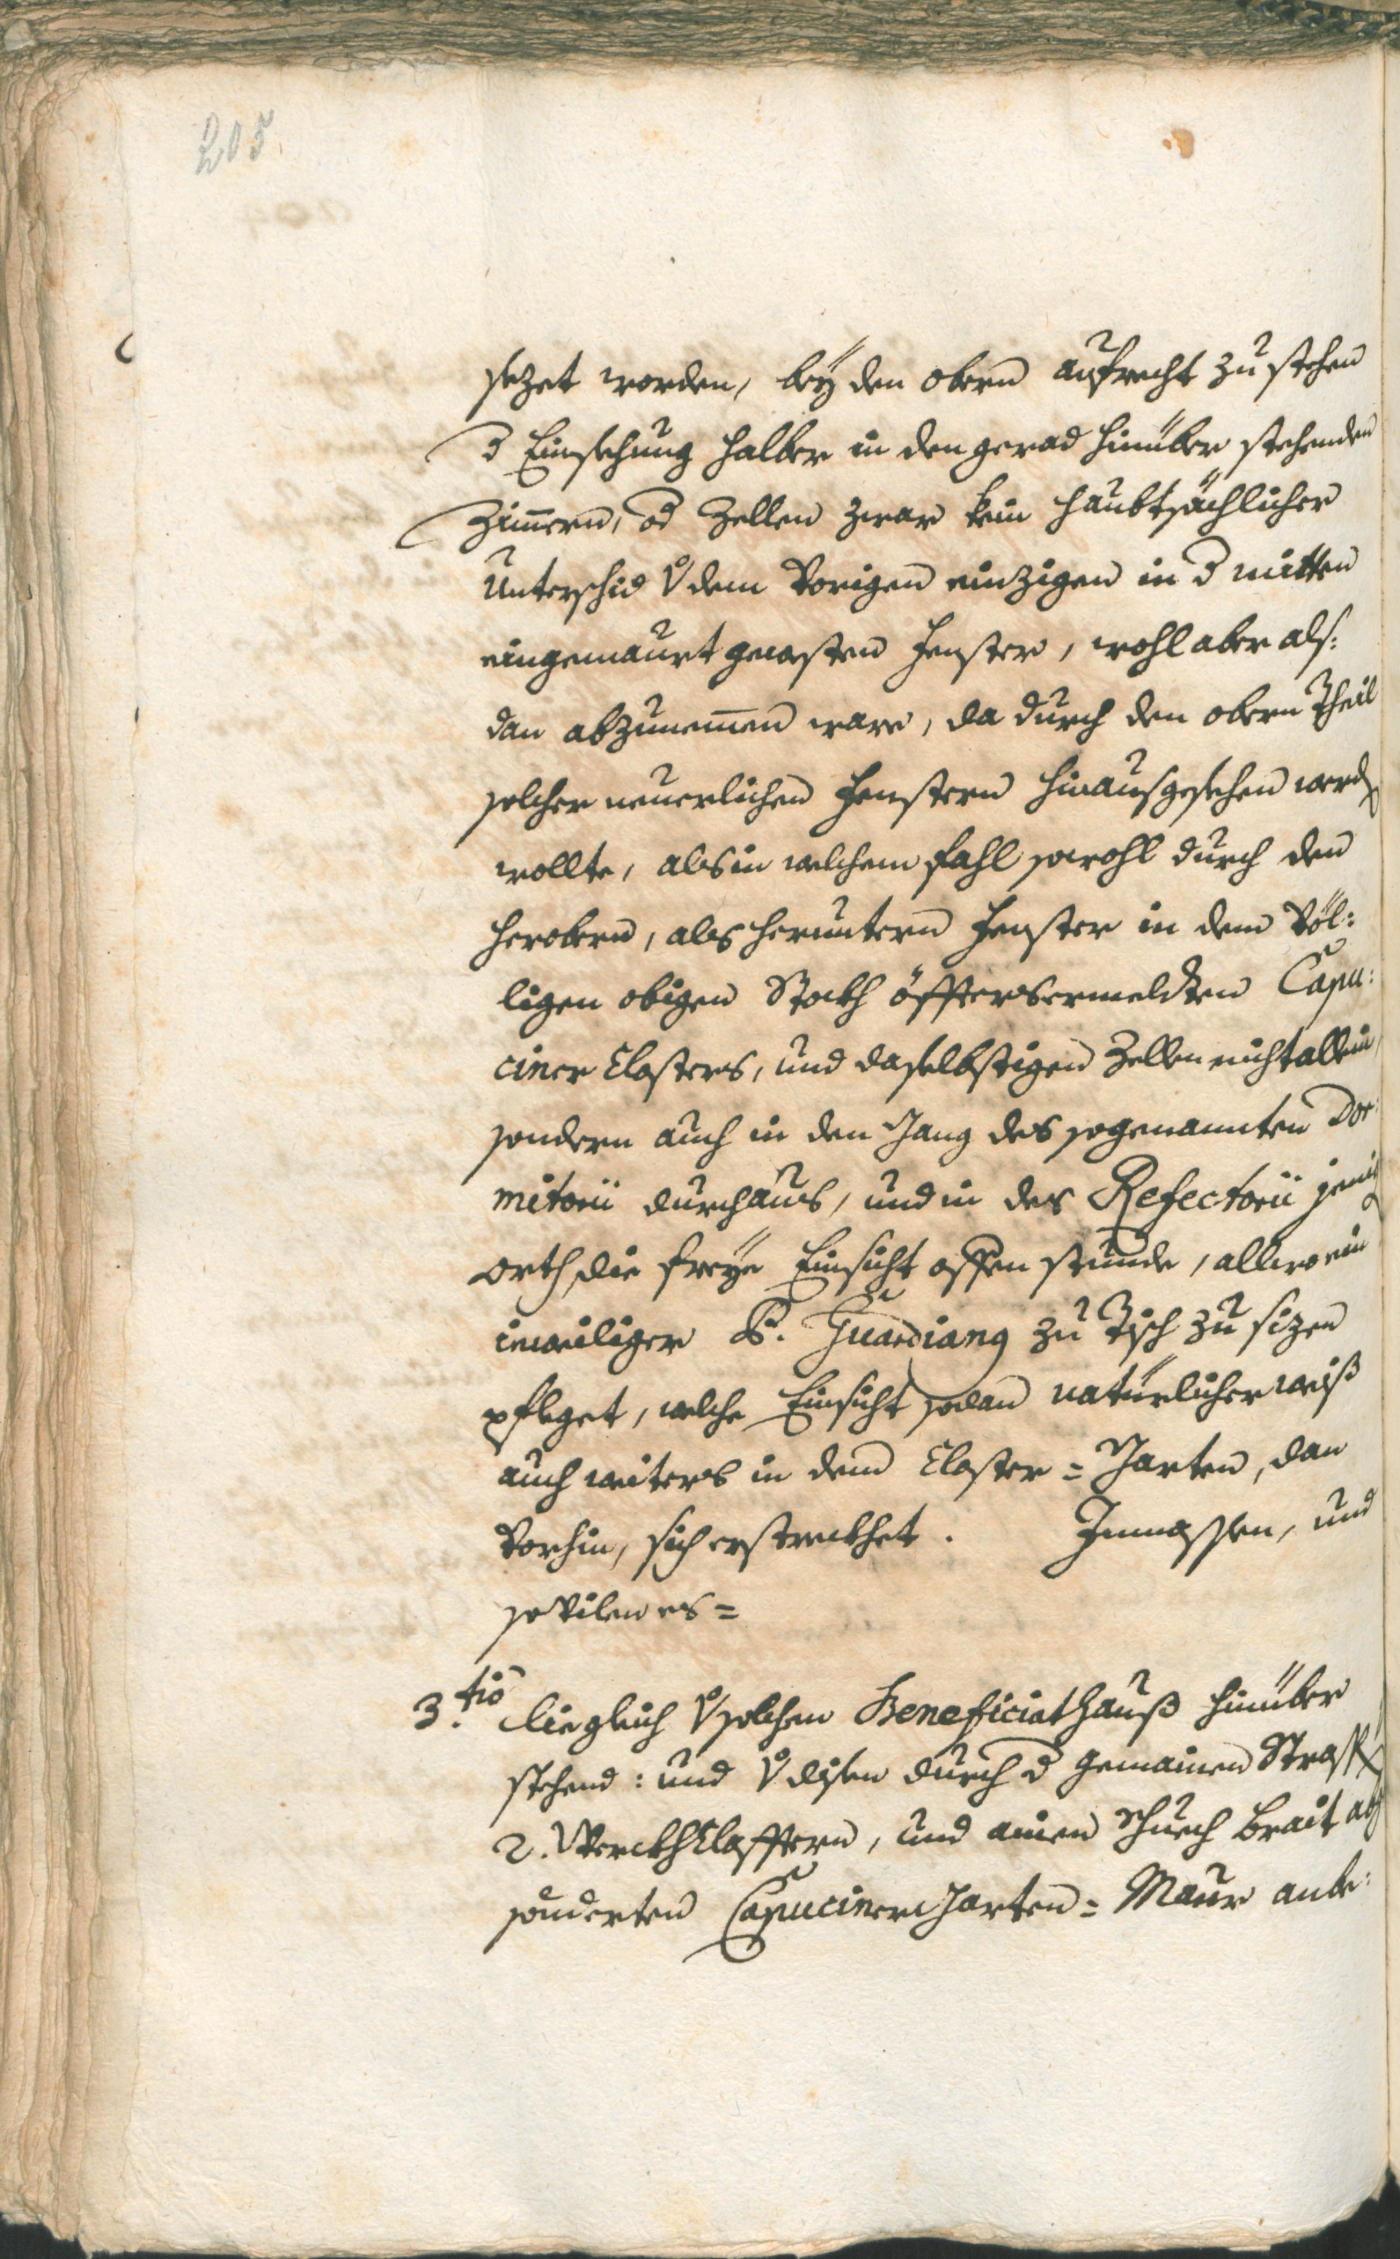 205.
sezet worden, beÿ den obern aufrecht zu stehen
d Einsehung halber in den gerad hinüber stehenden
Zimern, od Zellen zwar kein haubtsächlicher
Unterschid v dem Vorigen einzigen in d mitten
eingemaurt gewesten Fenster, wohl aber als:
dan abzunemen ware, da durch den obern Theil
solcher neuerlichen Fenstern hinausgesehen werd
wollte, als in welchem Fahl sowohl durch den
herobern, als heruntern Fenster in dem Völ:
ligen obigen Stockh öfftersermeldten Capu:
ciner Closters, und daselbstigen Zellen nicht allein
sondern auch in den Gang des sogenannten Dor:
mitorii durchaus, und in des Refectorii jenig
Orth, die freÿe Einsicht offen stunde, allwo ein
ieweiliger P. Guardiang zu Tisch zu sizen
pfleget, welche Einsicht sodan natürlicher weiß
auch weiters in dem Closter = Garten, dan
Vorhin, sich erstreckhet. Inmassen, und
so Vilen es =
3.tiò die gleich v solchem Beneficiat Hauß hinüber
stehend: und v disem durch d gemainen Strass
2. WerckhClafftern, und ainen Schuech brait ab
sonderten Capuciner Garten = Maur anbe: